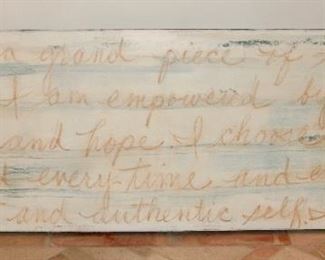 a grand piece of
I am empowered by
and hope. I choose
every time and
and authentic self.